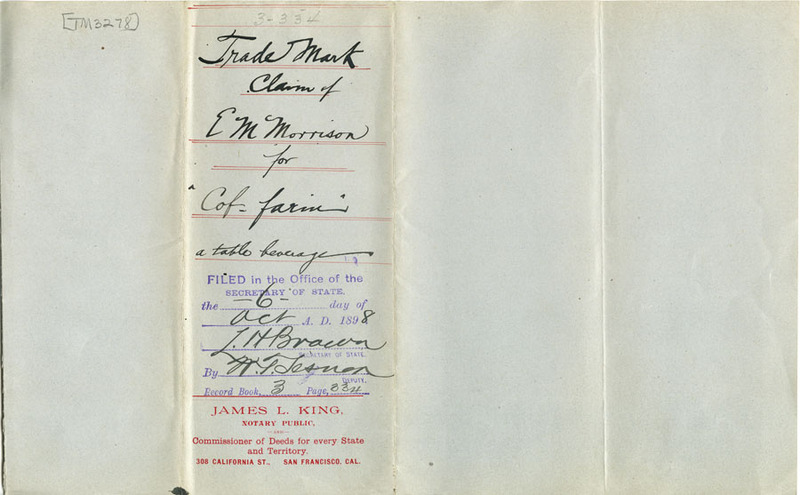 [TM3278]
3-334
Trade Mark
Claim of
E M Morrison
for
"Cof-farin"
a table beverage
FILED in the Office of the
SECRETARY OF STATE,
the -6- day of
Oct A. D. 1898
L. H. Brown
SECRETARY OF STATE.
By
DEPUTY.
Record Book, 3 Page, 334
JAMES L. KING,
NOTARY PUBLIC,
—AND—
Commissioner of Deeds for every State
and Territory.
308 CALIFORNIA ST., SAN FRANCISCO, CAL.